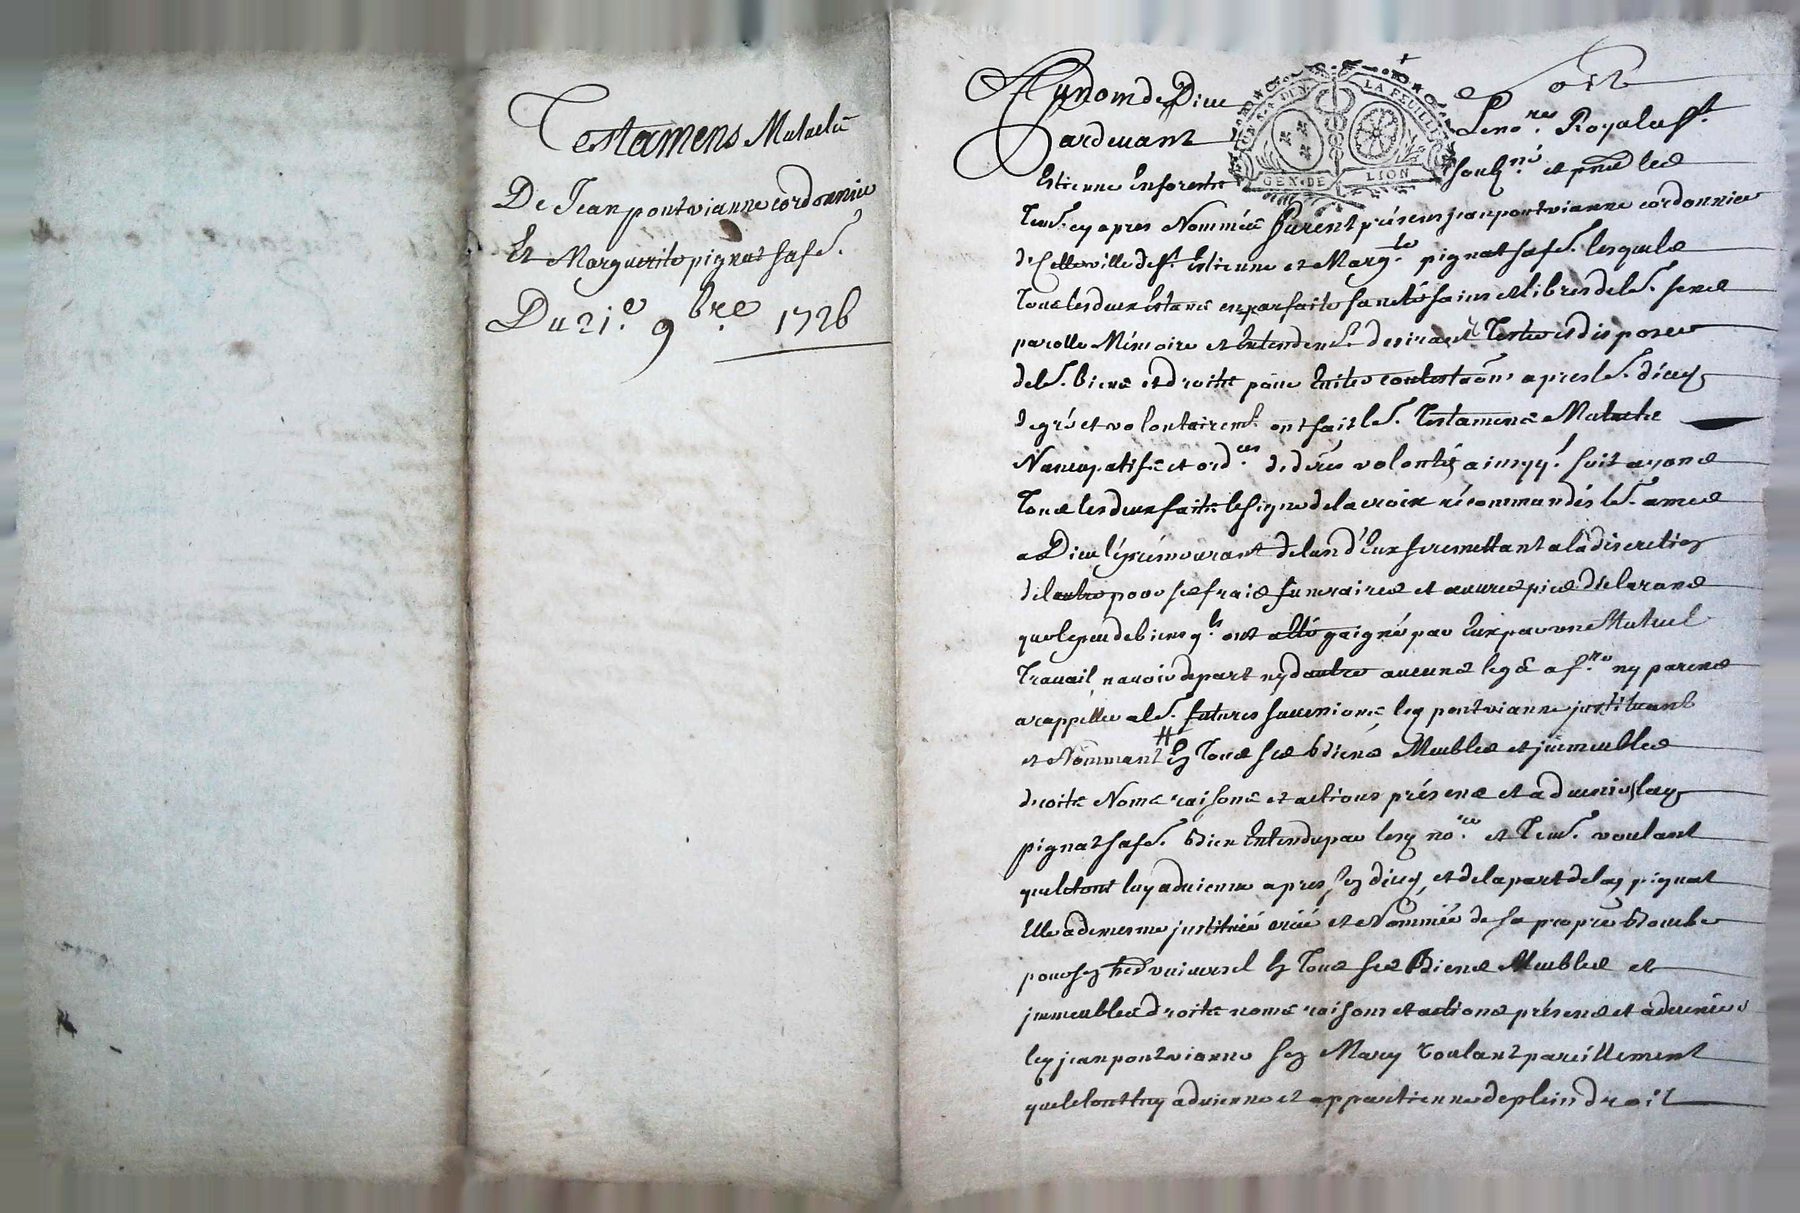 Testamens Mutuels
De Jean pontvianne cordonnier
Et Marguerite pignat sa fe.
Du 21e 9bre 1726
Au nom de Dieu soit
Pardevant Le nore Royal a St
UN SOL DEUX LA FEUILLE
GEN DE LION
Estienne en forests soubné et pnce des
Tem. cy apres Nommés furent présens jean pontvianne cordonnier
de cette ville de St Estienne et Margte pignat sa fe. lesquels
Tous les deux Estans en parfaite santé sains et libres de le. sens
parolle Mémoire et Entendemt. desirant Tester et disposer
de le. biens et droits pour Eviter contestaons apres le. décès
de gré et volontairemt. ont fait le. Testamens Mutuels
Nuncupatifs et ordces de dres volontés ainsy q. suit ayans
Tous les deux faits le signe de la croix récommandés le. ames
a Dieu le prémourant de l'un d'Eux se remettant a la discretion
de l'autre pour ses frais funeraires et œuvres pies declarans
que le peu de biens qls ont a Esté gaigné par Eux par un Mutuel
Travail n'avoir de part ny d'autre aucuns legs a fre ny parens
a rappeller a le. futures successions ley pontvianne instituant
et Nommant # En Tous ses biens Meubles et jmmeubles
droits Noms raisons et actions présens et advenir lad
pignat sa fe. bien Entendu par lesd nore et Tem. voulant
que le tout luy advienne apres son décès, et de la part de lad pignat
Elle a de mesme jnstitué créé et Nommé de sa propre bouche
pour son hed universel En Tous ses Biens Meubles et
jmmeubles droits noms raisons et actions présens et advenir
led jean pontvianne son Mary voulant pareillement
que le tout luy advienne et appartienne de plein droit